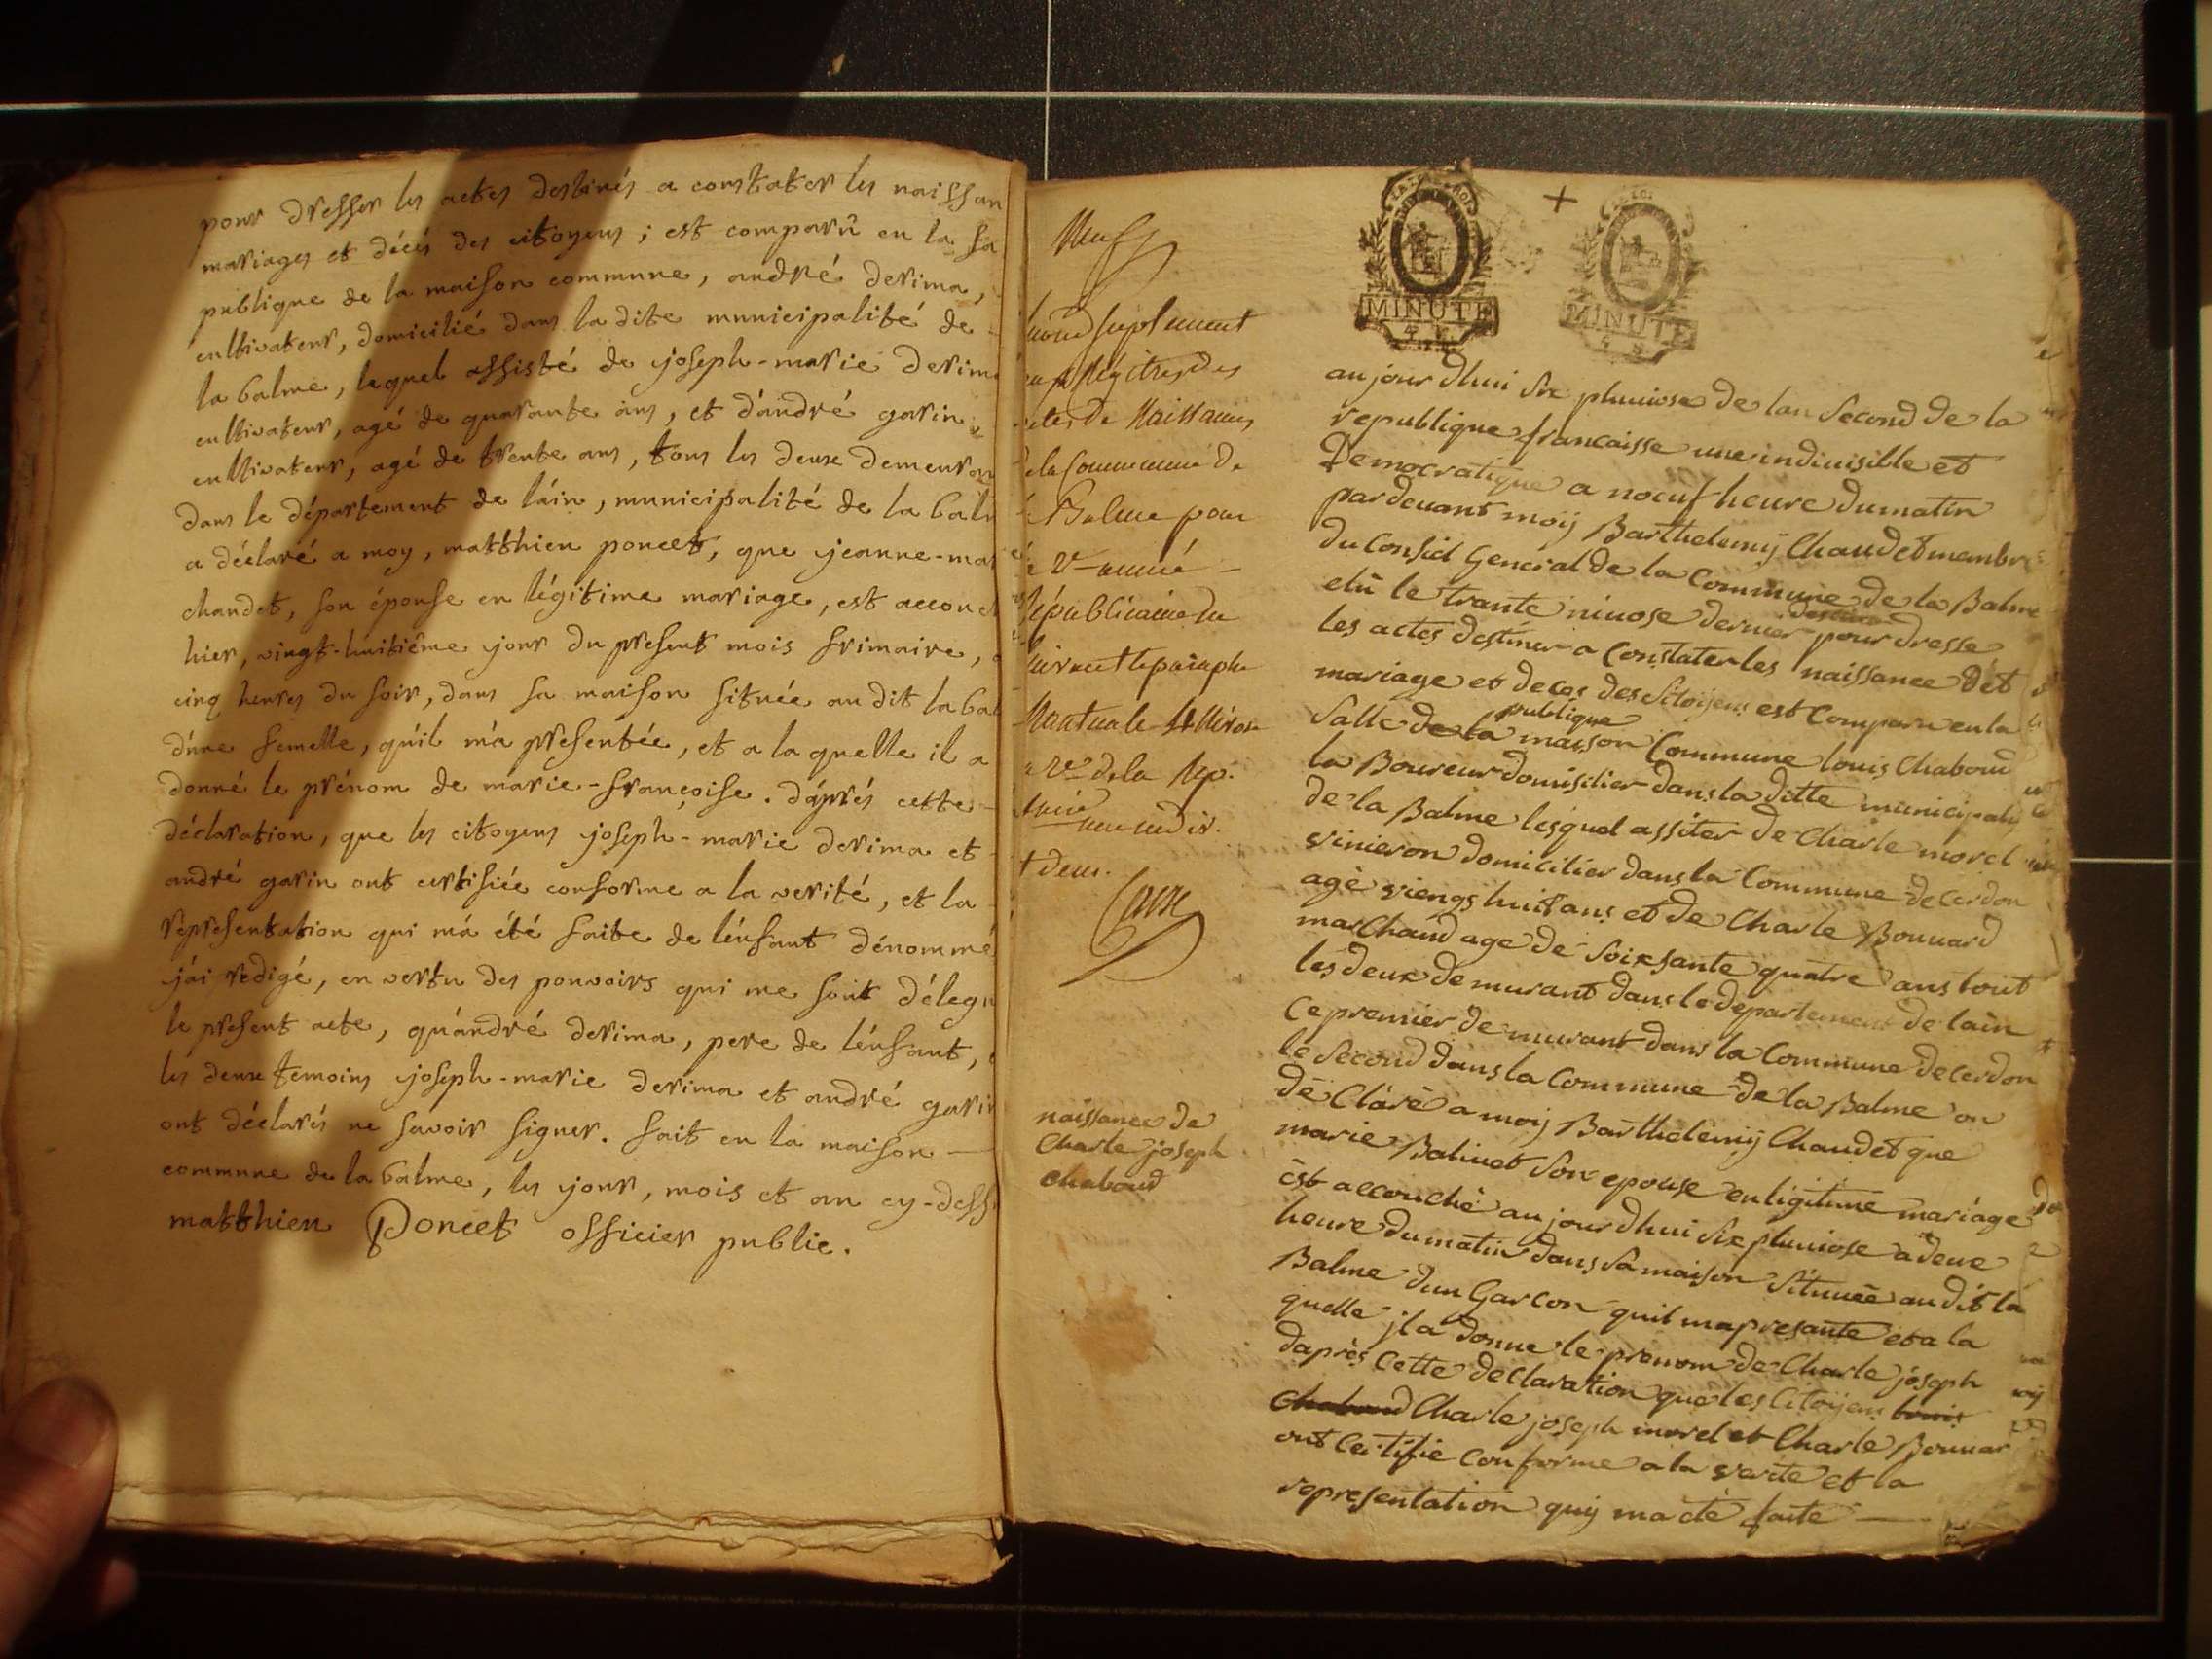 pour dresser les actes destinés a constater les naissan
mariages et décés des citoyens ; est comparû en la sa
publique de la maison commune, andré derima,
cultivateur, domicilié dans la dite municipalité de
la balme, lequel assisté de joseph-marie derima
cultivateur, agé de quarante ans, et d'andré garin,
cultivateur, agé de trente ans, tous les deux demeuran
dans le département de láin, municipalité de la balm
a déclaré a moy, matthieu poncet, que jeanne-mar
chaudet, son épouse en légitime mariage, est accouch
hier, vingt-huitiême jour du present mois frimaire,
cinq heures du soir, dans sa maison située au dit la bal
d'une femelle, qu'il m'a presentée, et a la quelle il a
donné le prénom de marie-françoise. d'áprés cette
déclaration, que les citoyens joseph-marie derima et
andré garin ont certifiée conforme a la verité, et la
répresentation qui má été faite de lénfant dénommé
j'ái redigé, en vertu des pouvoirs qui me sont délegu
le present acte, quándré derima, pere de lénfant,
les deux temoins joseph-marie derima et andré garin
ont déclarés ne savoir signer. fait en la maison
commune de la balme, les jour, mois et an cy-dess
matthieu Poncet officier public.
suplement
Régitres des
de Naissances
de la Commune de
Balme pour
2e année
républicaine
le paraphe
Nantua le
2e de la Rep.
deux.
naissance de
Charle joseph
chaboud
MINUTE
MINUTE
aujourdhui six pluviose de lan second de la
republique francaisse une indivisible et
Democratique a noeuf heure du matin
pardevant moij Barthelemij Chaudet membre
du Conseil General de la Commune de la Balme
elû le trante nivose dernier pour dresse
les actes destiner a Constater les naissance d'et
mariage et deces des Sitoijens est Comparu en la
publique
Salle de la maison Commune louis Chaboud
la Boureur domisilier dans la ditte municipalij
de la Balme lesquel assiter de Charle morel
vinieron domicilier dans la Commune de Cerdon
agè viengs huit ans et de Charle Bouvard
marChand age de soixsante quatre ans tout
les deux demurant dans le departement de lain
Ce premier demurant dans la Commune de Cerdon
le Second dans la Commune de la Balme on
déClárè a moij Barthelémij Chaudet que
marie Balivet son epouse en ligitime mariáge
èst accouchè aujourdhui six pluviose a deux
heure du matin dans sa maison situueé au dit la
Balme dun Garcon quil ma presante et a la
quelle jl a donne le prenom de Charle joseph
daprès Cette declaration que les Citoijens louis
Chaboud Charle joseph morel et Charle Bouvar
ont Certifie Conforme a la verite et la
representation quij ma etè faite